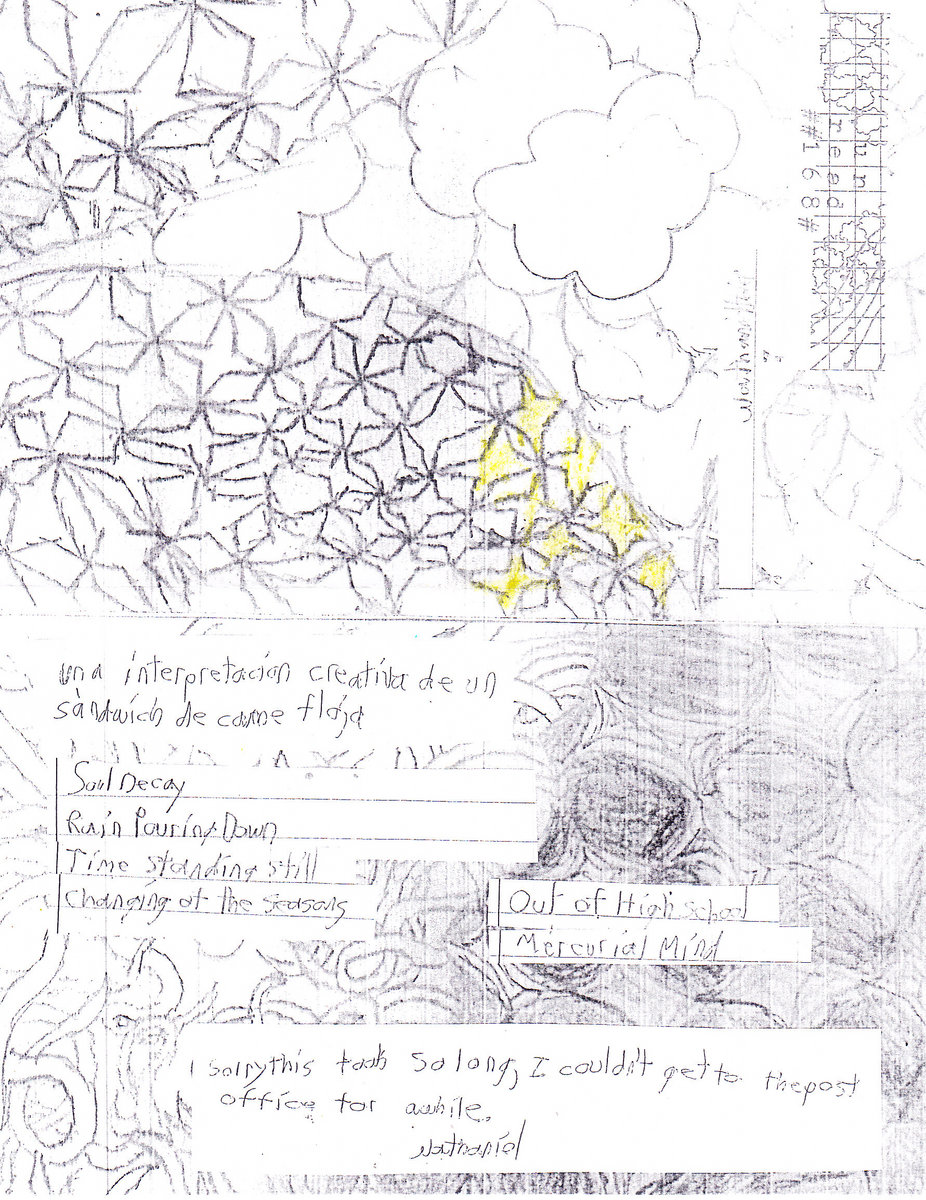 un
reed
##168#
Nathaniel
una interpretación creativa de un
sàndwich de carne flója
Soul Decay
Rain Pouring Down
Time standing still
Changing of the seasons
Out of High school
Mercurial Mind
sorry this took so long, I couldn't get to the post
office for awhile.
Nathaniel